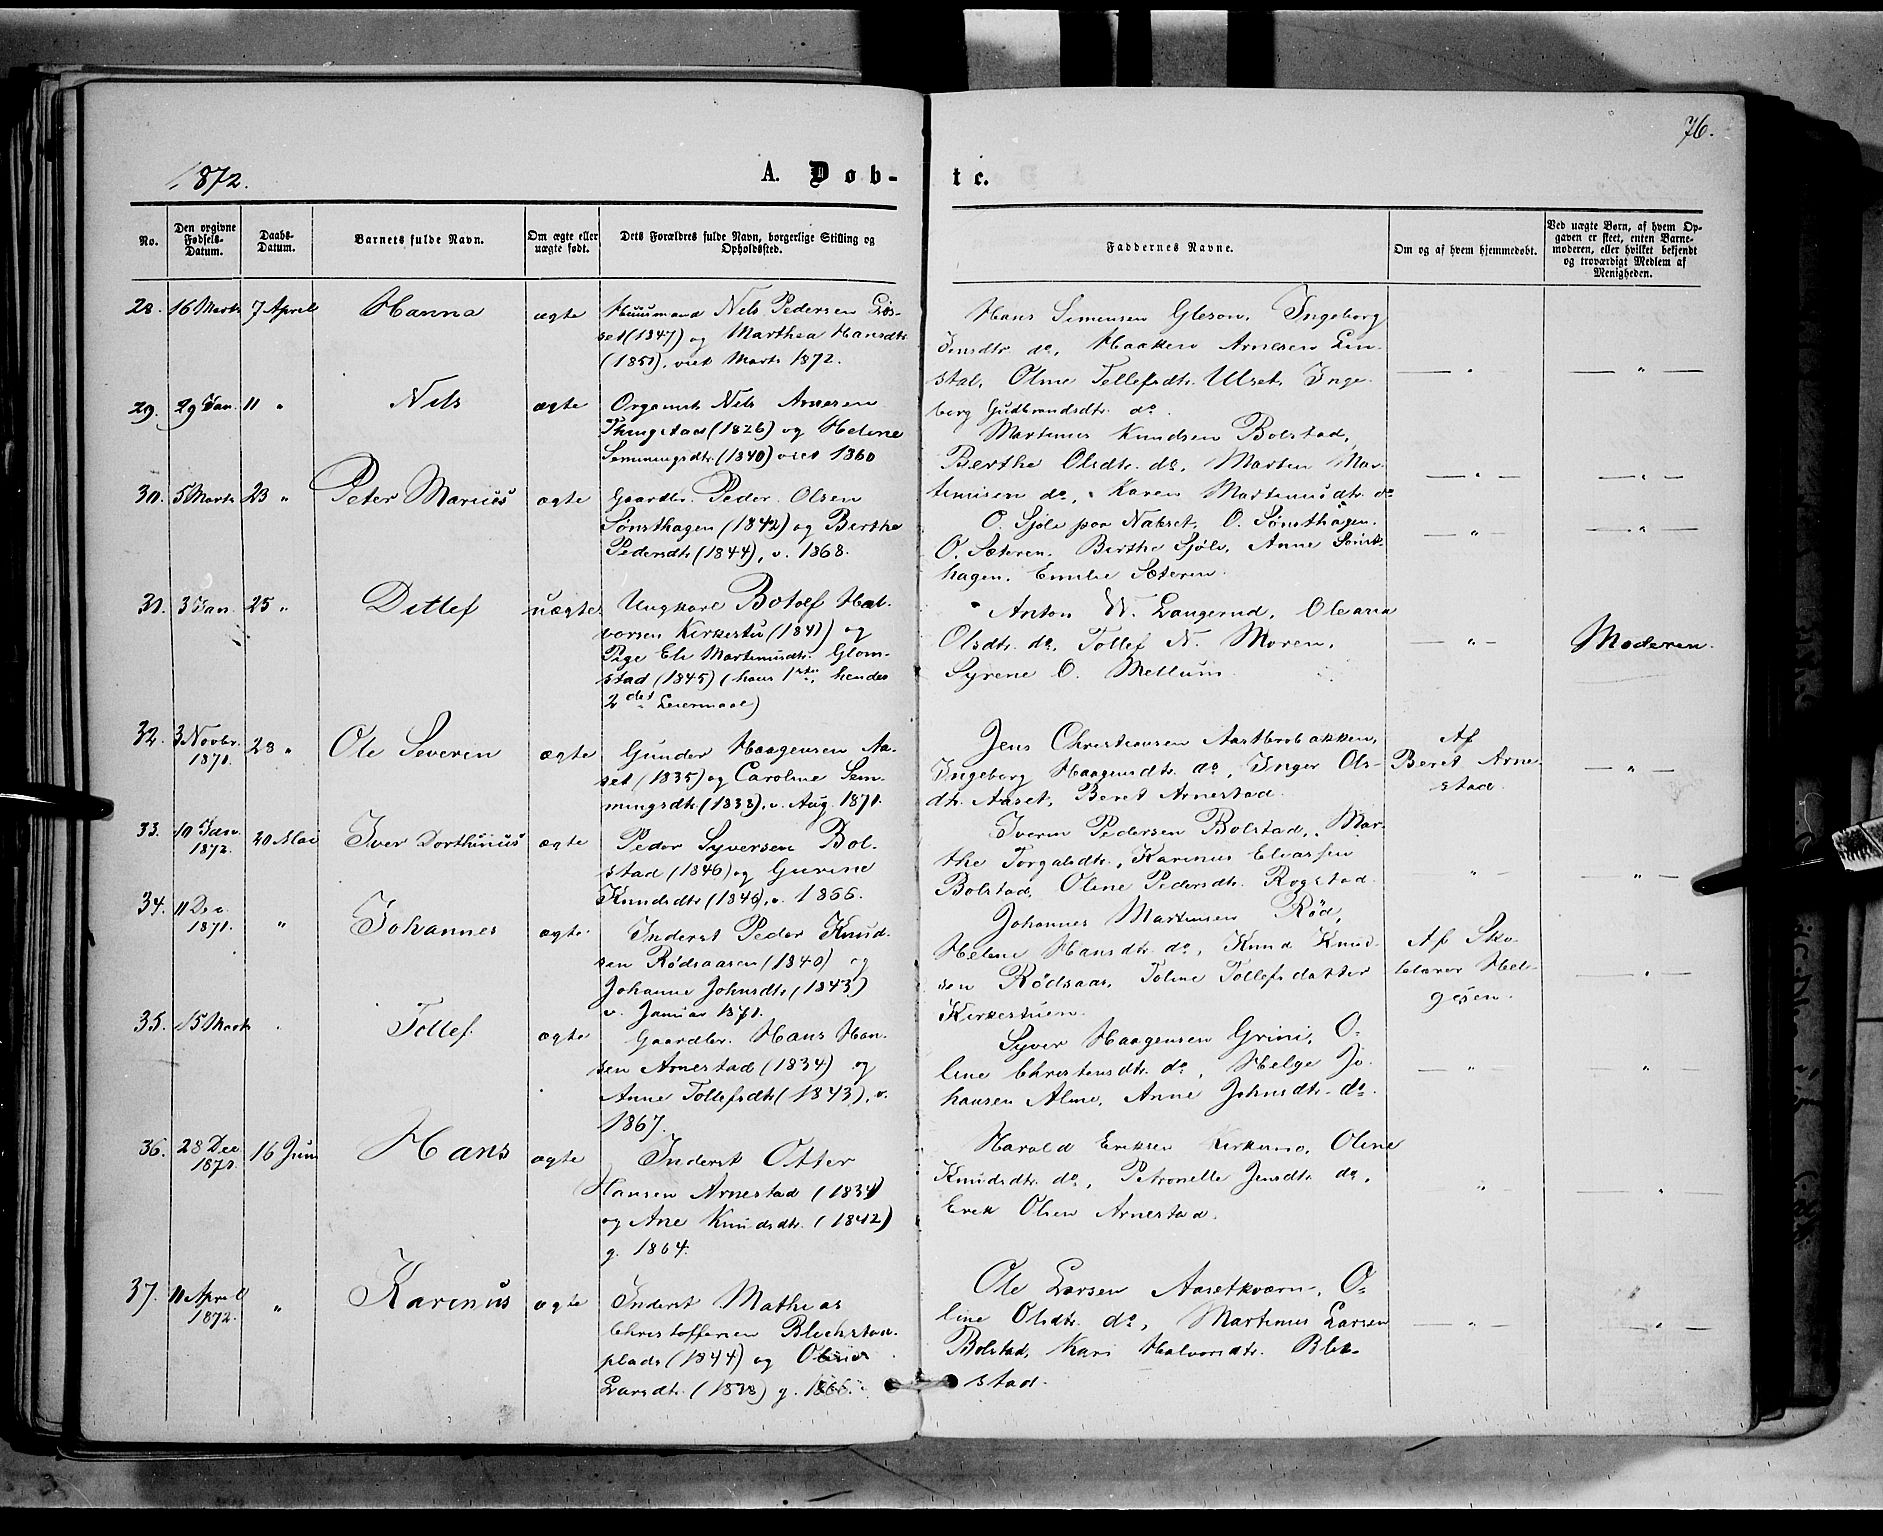 76.
1872.
A. Døb-
te.
No.
Den opgivne Fødsels-Datum.
Daabs-Datum.
Barnets fulde Navn.
Om ægte eller uægte født.
Dets Forældres fulde Navn, borgerlige Stilling og Opholdssted.
Faddernes Navne.
Om og af hvem hjemmedøbt.
Ved uægte Børn, af hvem Opgaven er skeet, enten Barnemoderen, eller hvilket bekjendt og troværdigt Medlem af Menigheden.
28. 16 Marts 7 April Hanna ægte
Huusmand Nels Pedersen
set (1847) og Marthea Hansdtr.
(1851), viet Marts 1872.
Hans Simensen Gleson, Ingeborg
Jensdtr. do, Haaken Arnesen Lin-
stad, Oline Tollefsdtr. Ulset, Inge-
borg Gudbrandsdtr. do.
— " — — " —
29. 29 Jan. 11 " Nels ægte
Organist Nels Arnesen
Thingstad (1826) og Helene
Semmingsdtr. (1840) viet 1860
Martinus Knudsen Bolstad,
Berthe Olsdtr. do, Marten Mar-
tinisen do, Karen Martinusdtr. do
— " — — " —
30. 5 Marts 23 " Peter Marius ægte
Gaardbr. Peder Olsen
Sønsthagen (1842) og Berthe
Pedersdtr. (1844), v. 1868.
O. Sjøli paa Nakset, O. Sønsthagen,
O. Sæteren, Berthe Sjøli, Anne Sønst-
hagen, Emilie Sæteren.
— " — — " —
31. 3 Jan. 25 " Ditlef uægte
Ungkarl Botolf Hal-
vorsen Kirkestu (1841) og
Pige Eli Martinusdtr. Glom-
stad (1845) (hans 1ste, hendes
2det Leiermaal)
Anton N. Langerud, Oleana
Olsdtr. do, Tollef N. Moren,
Syrene O. Mellum.
— " — Moderen.
32. 3 Novbr. 1871. 28 " Ole Severin ægte
Gunder Haagensen Aa-
set (1835) og Caroline Sem-
mingsdtr. (1838), v. Aug. 1871.
Jens Christiansen Aastbrobakken,
Ingeborg Haagensdtr. do, Inger Ols-
dtr. Aaset, Beret Arnestad.
Af
Beret Arne-
stad.
— " —
33. 10 Jan. 1872. 20 Mai Iver Dorthinius ægte
Peder Syversen Bol-
stad (1846) og Gurine
Knudsdtr. (1846), v. 1866.
Iverin Pedersen Bolstad, Mar-
the Torgalsdtr., Karinus Eliassen
Bolstad, Oline Pedersdtr. Rogstad.
" — — " —
34. 11 Dec. 1871. " Johannes ægte
Inderst Peder Knud-
sen Rødsaasen (1840) og
Johanne Johnsdtr. (1843)
v. Januar 1871.
Johannes Martinsen Rød,
Helene Hansdtr. do, Knud Knud-
sen Rødsaas, Toline Tollefsdatter
Kirkestuen.
Af Sko-
lærer Hel-
gesen.
— " —
35. 15 Marts " Tollef ægte
Gaardbr. Hans Han-
sen Arnestad (1834) og
Anne Tollefsdtr. (1843), v.
1867.
Syver Haagensen Grini, O-
line Christensdtr. do, Helge Jo-
hansen Alme, Anne Johnsdtr. do.
— " — — " —
36. 28 Dec 1871. 16 Juni Hans ægte
Inderst Otter
Hansen Arnestad (1834)
og Ane Knudsdtr. (1842)
g. 1864.
Harald Eriksen Kirkemo, Oline
Knudsdtr. do, Petronelle Jensdtr. do,
Erik Olsen Arnestad.
" — " —
37. 11 April 1872. " Karinus ægte
Inderst Mathias
Christoffersen Blechstan-
plads (1844) og
Larsdtr. (1838) g.
Ole Larsen Aasetkværn, O-
line Olsdtr. do, Martinus Larsen
Bolstad, Kari Halvorsdtr. Blik-
stad.
— " — — " —